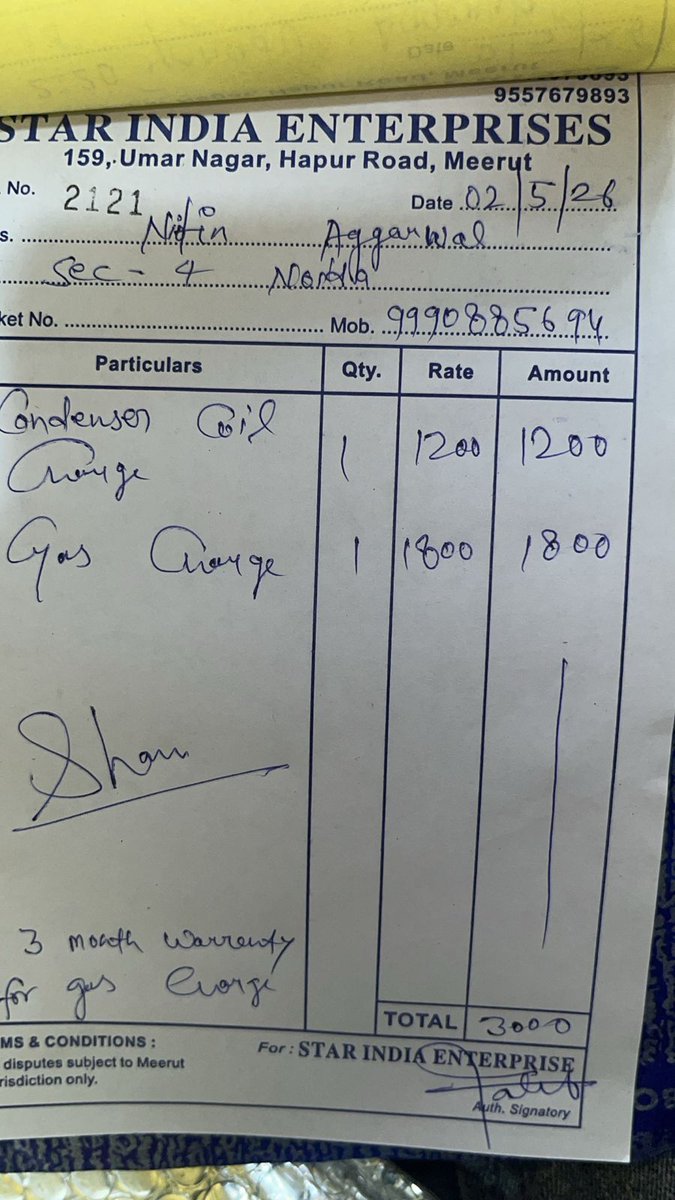 9557679893
STAR INDIA ENTERPRISES
159, Umar Nagar, Hapur Road, Meerut
No. 2121 Date 02/5/26
s. Nitin Aggarwal
Sec - 4 Noida
ket No. Mob. 9990885694
Particulars Qty. Rate Amount
Condenser Coil
Charge 1 1200 1200
Gas Charge 1 1800 1800
3 month warrenty
for gas Charge
TOTAL 3000
MS & CONDITIONS :
disputes subject to Meerut
risdiction only.
For : STAR INDIA ENTERPRISE
Auth. Signatory